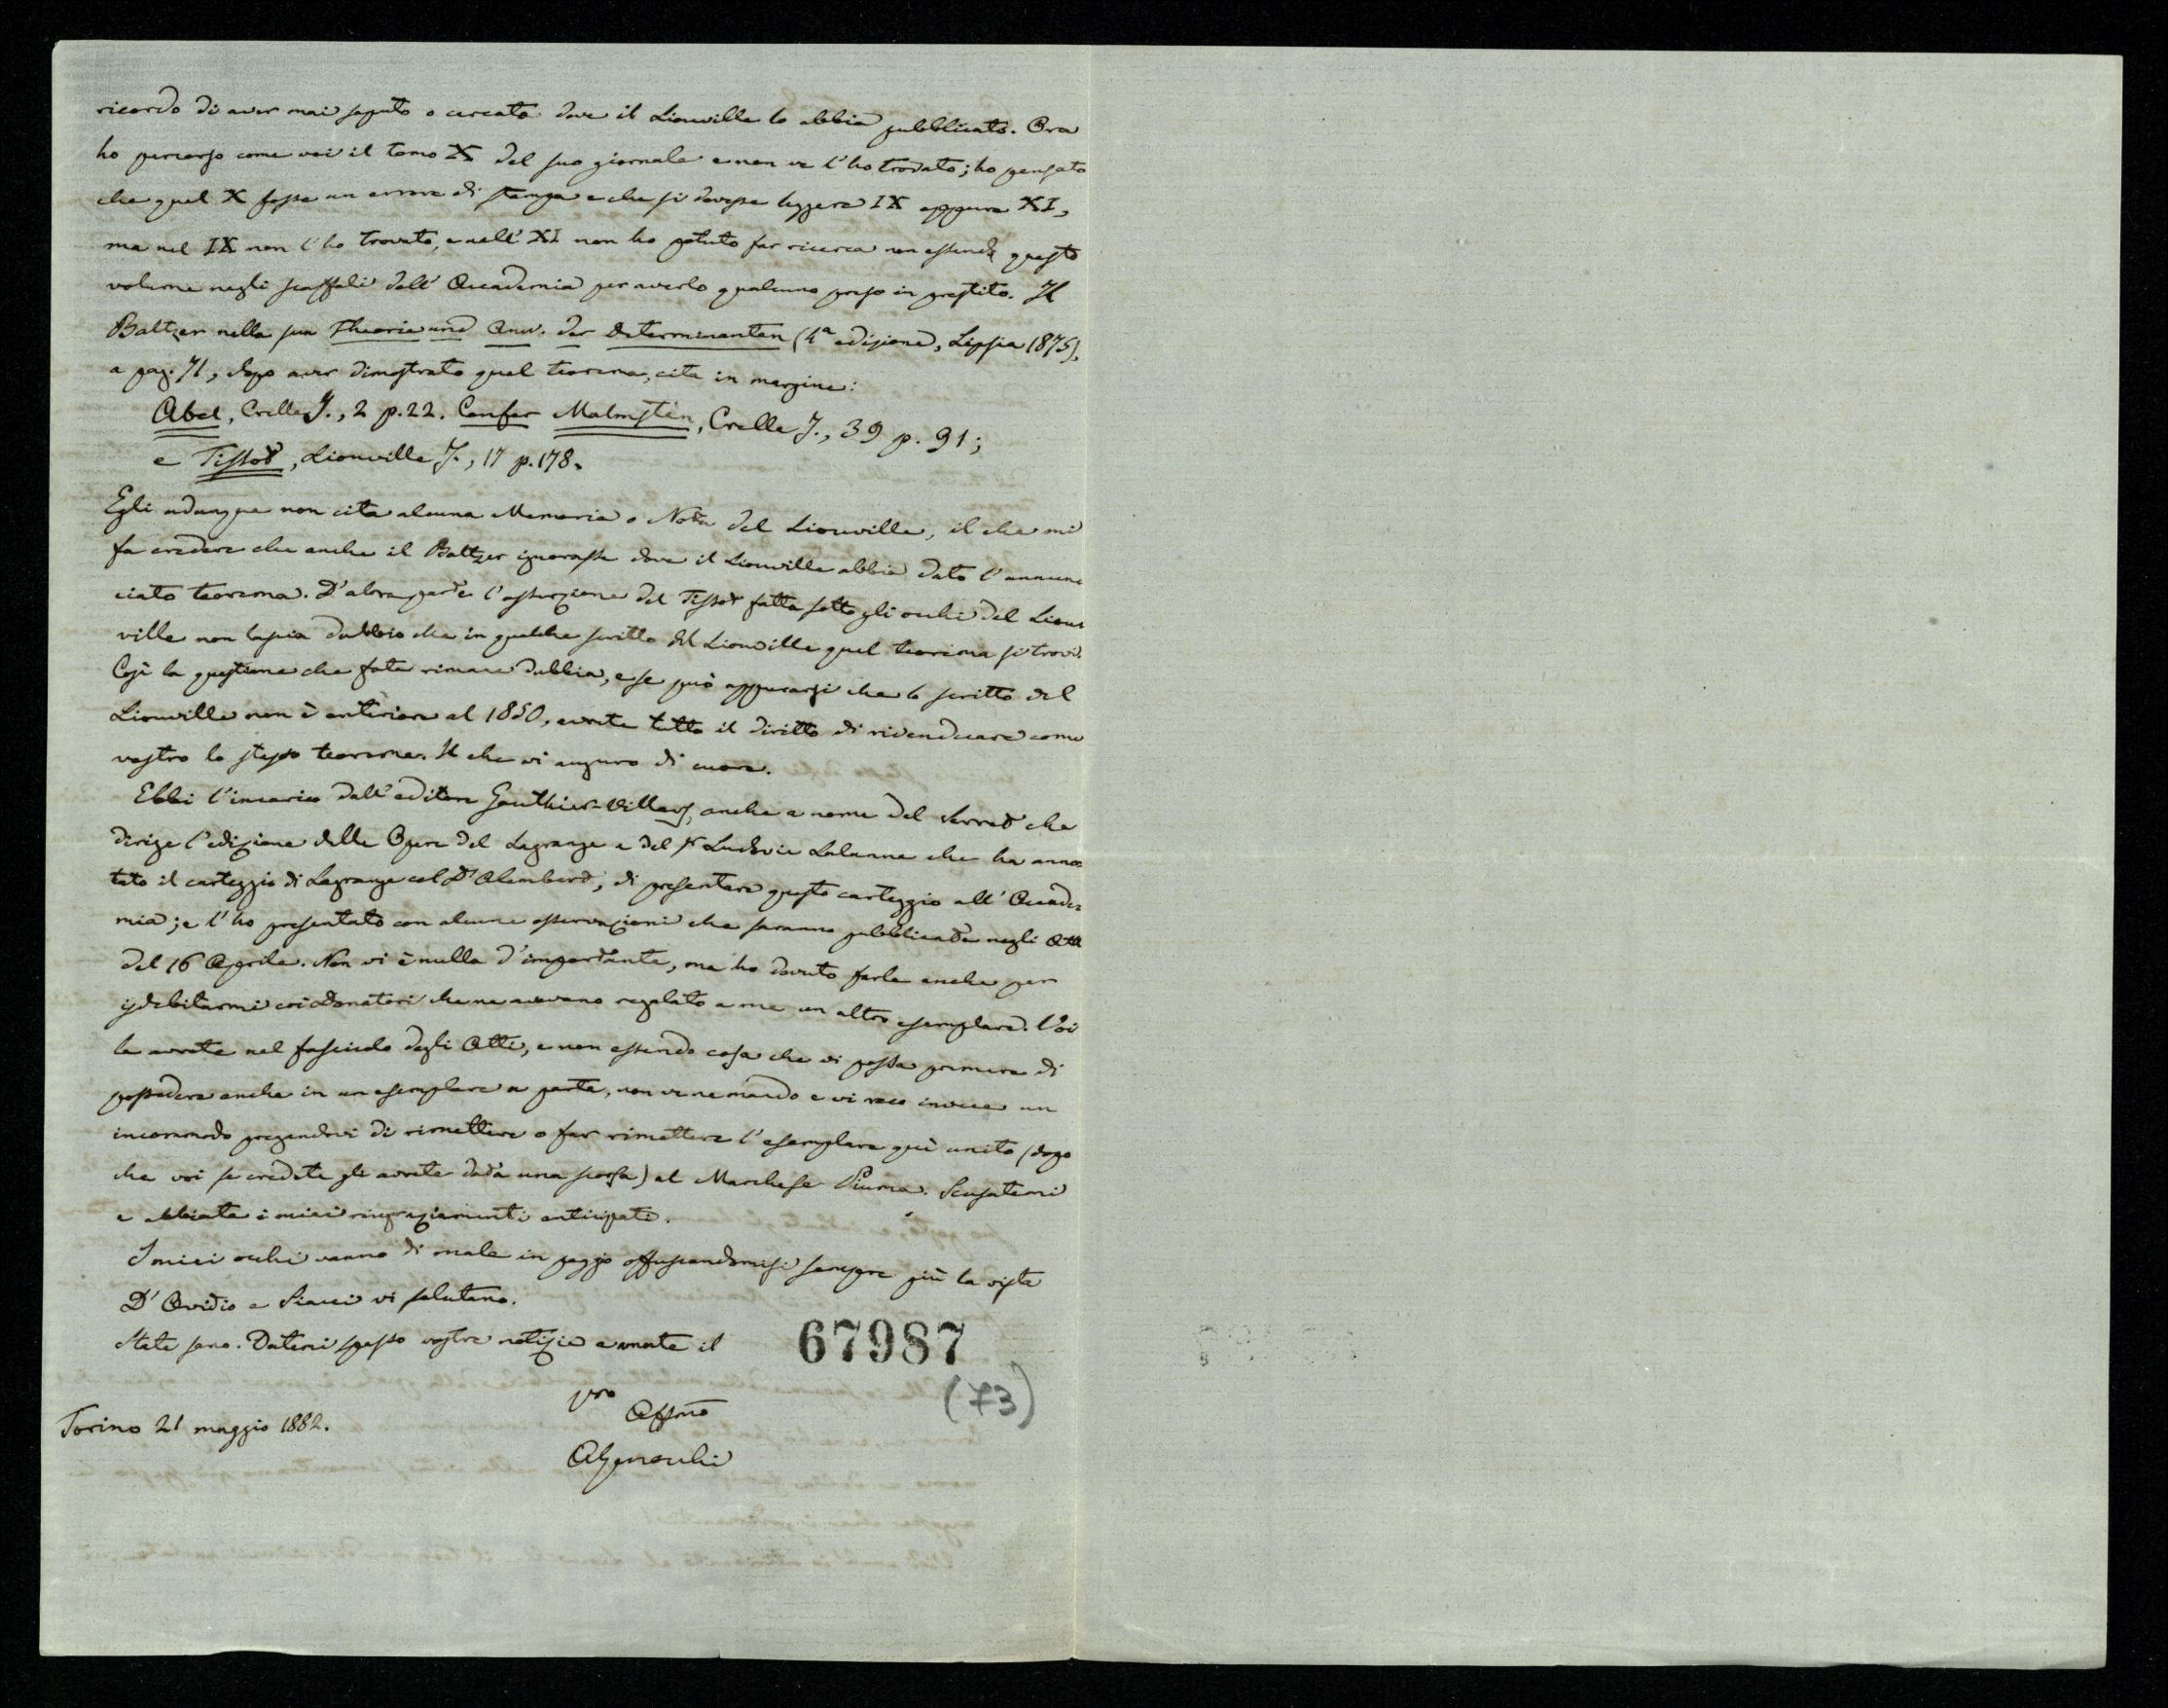 ricordo di aver mai saputo o cercato dove il Liouville lo abbia pubblicato. Ora
ho percorso come voi il tomo X del suo giornale e non ve l'ho trovato; ho pensato
che quel X fosse un errore di stampa e che si dovesse leggere IX oppure XI,
ma nel IX non l'ho trovato, e nell'XI non ho potuto far ricerca non essendo questo
volume negli scaffali dell'Accademia per averlo qualcuno preso in prestito. Il
Baltzer nella sua Theorie und Anw. der Determinanten (4ª edizione, Lipsia 1875),
a pag. 71, dopo aver dimostrato quel teorema, cita in margine:
Abel, Crelle J., 2 p. 22. Confer Malmstèn, Crelle J., 39 p. 91;
e Tissot, Liouville J., 17 p. 178.
Egli adunque non cita alcuna Memoria o Nota del Liouville, il che mi
fa credere che anche il Baltzer ignorasse dove il Liouville abbia dato l'annun-
ciato teorema. D'altra parte l'asserzione del Tissot fatta sotto gli occhi del Liou-
ville non lascia dubbio che in qualche scritto del Liouville quel teorema si trovi.
Così la questione che fate rimane dubbia, e se può appurarsi che lo scritto del
Liouville non è anteriore al 1850, avrete tutto il diritto di rivendicare come
vostro lo stesso teorema. Il che vi auguro di cuore.
Ebbi l'incarico dall'editore Gauthier-Villars, anche a nome del Serret che
dirige l'edizione delle Opere del Lagrange e del Sr Ludovic Lalanne che ha anno-
tato il carteggio di Lagrange col D'Alembert, di presentare questo carteggio all'Accade-
mia; e l'ho presentato con alcune osservazioni che saranno pubblicate negli Atti
del 16 Aprile. Non vi è nulla d'importante, ma ho dovuto farle anche per
isdebitarmi coi Donatori che ne avevano regalato a me un altro esemplare. Voi
le avrete nel fascicolo degli Atti, e non essendo cosa che vi possa premere di
possedere anche in un esemplare a parte, non ve ne mando e vi reco invece un
incommodo pregandovi di rimettere o far rimettere l'esemplare quì unito (dopo
che voi se credete gli avrete data una scorsa) al Marchese Piuma. Scusatemi
e abbiate i miei ringraziamenti anticipati.
I miei occhi vanno di male in peggio offuscandomisi sempre più la vista
D'Ovidio e Siacci vi salutano.
State sano. Datemi spesso vostre notizie e amate il
67987
(73)
vro
Affmo
AGenocchi
Torino 21 maggio 1882.